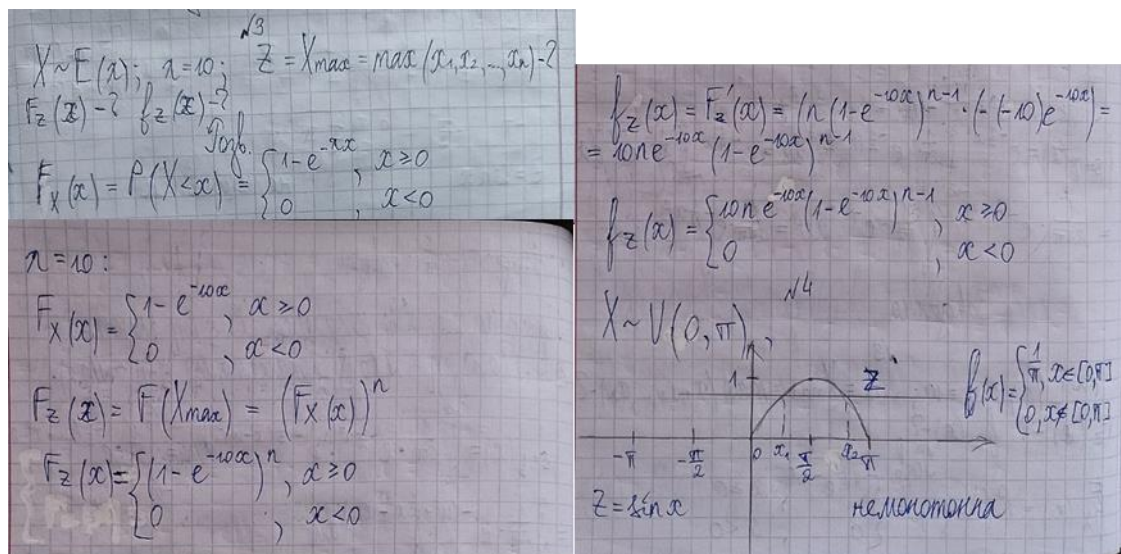 №3
X ~ E(λ); λ=10; Z = Xmax = max(x₁,x₂,...,xₙ)-?
F_Z(x)-? f_Z(x)-?
Розв.
F_X(x) = P(X<x) = { 1-e^{-λx}, x≥0
0, x<0
λ=10:
F_X(x) = { 1-e^{-10x}, x≥0
0, x<0
F_Z(x) = F(Xmax) = (F_X(x))ⁿ
F_Z(x) = { (1-e^{-10x})ⁿ, x≥0
0, x<0
f_Z(x) = F'_Z(x) = (n(1-e^{-10x})^{n-1}·(-(-10)e^{-10x}) =
= 10ne^{-10x}(1-e^{-10x})^{n-1}
f_Z(x) = { 10ne^{-10x}(1-e^{-10x})^{n-1}, x≥0
0, x<0
№4
X ~ U(0,π),
1 Z
f(x) = { 1/π, x∈[0,π]
0, x∉[0,π]
-π -π/2 0 x₁ π/2 x₂ π
Z = sin x немонотонна